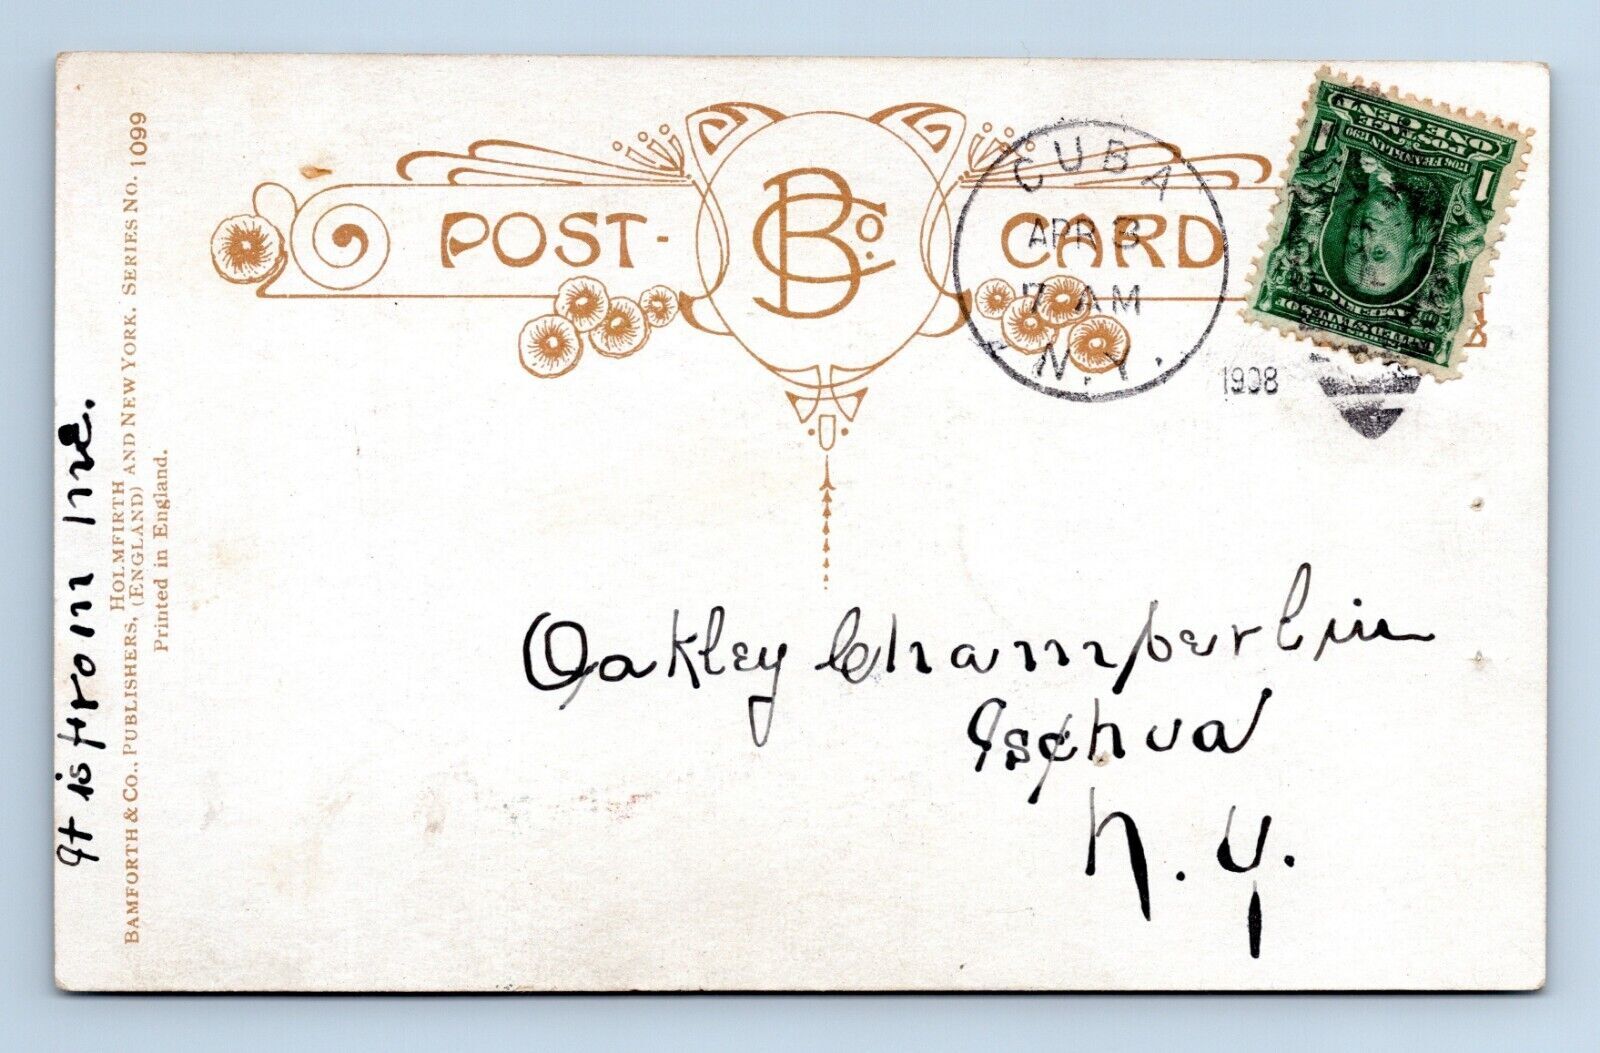 POST-CARD
BCo.
CUBA
APR 3
7 AM
N.Y.
1908
1 POSTAGE 1
ONE CENT
FRANKLIN
Oakley Chamberlin
Ischua
N.Y.
It is from me.
BAMFORTH & CO., PUBLISHERS, HOLMFIRTH (ENGLAND) AND NEW YORK. SERIES NO. 1099
Printed in England.